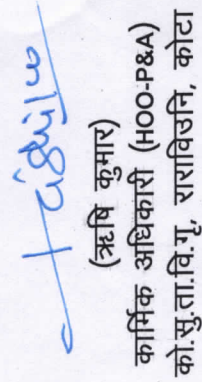 (ऋषि कुमार)
कार्मिक अधिकारी (HOO-P&A)
को.सु.ता.वि.गृ, राराविउनि, कोटा